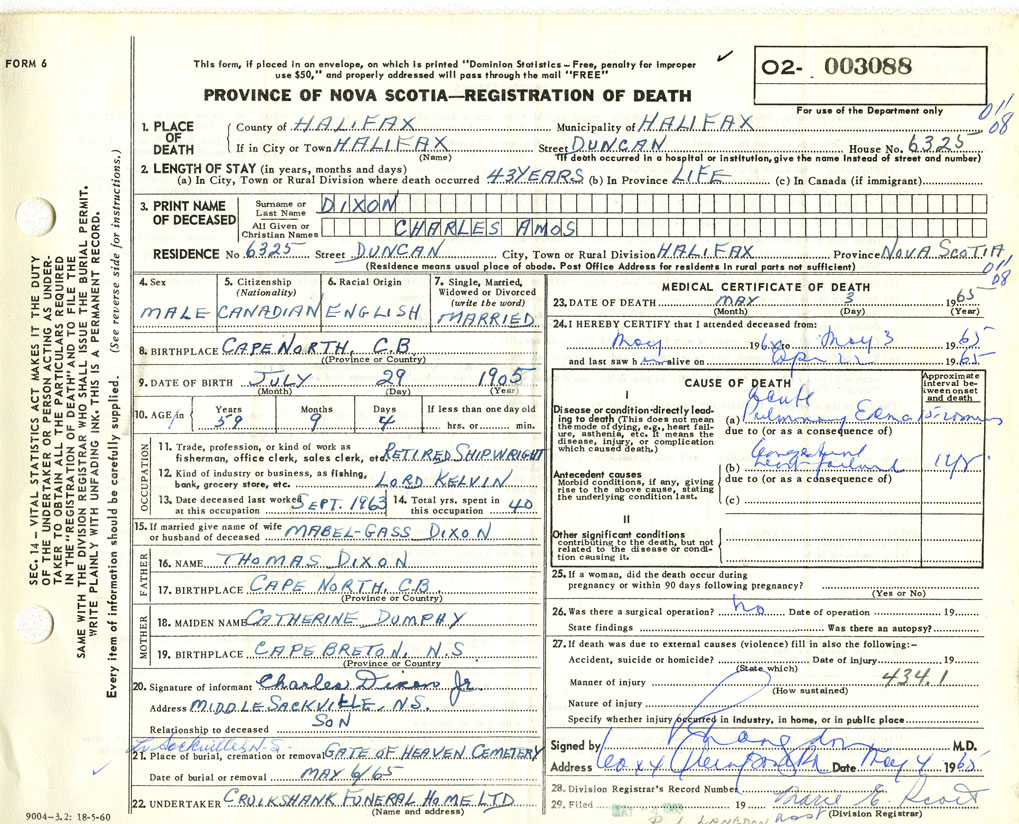 FORM 6
This form, if placed in an envelope, on which is printed "Dominion Statistics – Free, penalty for improper
use $50," and properly addressed will pass through the mail "FREE"
O2- 003088
For use of the Department only
PROVINCE OF NOVA SCOTIA—REGISTRATION OF DEATH
011
08
1. PLACE OF DEATH
County of HALIFAX Municipality of HALIFAX
If in City or Town HALIFAX Street DUNCAN House No. 6325
(Name) (If death occurred in a hospital or institution, give the name instead of street and number)
2. LENGTH OF STAY (in years, months and days)
(a) In City, Town or Rural Division where death occurred 43 YEARS (b) In Province LIFE (c) In Canada (if immigrant)
3. PRINT NAME OF DECEASED
Surname or Last Name DIXON
All Given or Christian Names CHARLES AMOS
RESIDENCE No 6325 Street DUNCAN City, Town or Rural Division HALIFAX Province NOVA SCOTIA
(Residence means usual place of abode. Post Office Address for residents in rural parts not sufficient)
011
08
4. Sex
MALE
5. Citizenship
(Nationality)
CANADIAN
6. Racial Origin
ENGLISH
7. Single, Married,
Widowed or Divorced
(write the word)
MARRIED
8. BIRTHPLACE CAPE NORTH, C.B.
(Province or Country)
9. DATE OF BIRTH JULY 29 1905
(Month) (Day) (Year)
10. AGE Years Months Days If less than one day old
59 9 4 hrs. or min.
OCCUPATION
11. Trade, profession, or kind of work as
fisherman, office clerk, sales clerk, etc. RETIRED SHIPWRIGHT
12. Kind of industry or business, as fishing,
bank, grocery store, etc. LORD KELVIN
13. Date deceased last worked
at this occupation SEPT. 1963
14. Total yrs. spent in
this occupation 40
15. If married give name of wife
or husband of deceased MABEL-GASS DIXON
FATHER
16. NAME THOMAS DIXON
17. BIRTHPLACE CAPE NORTH, C.B.
(Province or Country)
MOTHER
18. MAIDEN NAME CATHERINE DUMPHY
19. BIRTHPLACE CAPE BRETON, N.S
(Province or Country
20. Signature of informant Charles Dixon Jr.
Address MIDDLE SACKVILLE, N.S.
Relationship to deceased SON
Sackville N.S.
21. Place of burial, cremation or removal GATE OF HEAVEN CEMETERY
Date of burial or removal MAY 6/65
22. UNDERTAKER CRUIKSHANK FUNERAL HOME LTD
(Name and address)
9004-3.2: 18-5-60
MEDICAL CERTIFICATE OF DEATH
23. DATE OF DEATH MAY 3 1965
(Month) (Day) (Year)
24. I HEREBY CERTIFY that I attended deceased from:
May 196 to May 3 1965
and last saw h alive on Apr 22 1965
CAUSE OF DEATH
Approximate
interval be-
tween onset
and death
I
Disease or condition directly lead-
ing to death (This does not mean
the mode of dying, e.g., heart fail-
ure, asthenia, etc. It means the
disease, injury, or complication
which caused death.)
(a) Acute
Pulmonary
due to (or as a consequence of)
Antecedent causes
Morbid conditions, if any, giving
rise to the above cause, stating
the underlying condition last.
(b) Congestive
heart failure 1 yr.
due to (or as a consequence of)
(c)
II
Other significant conditions
contributing to the death, but not
related to the disease or condi-
tion causing it.
25. If a woman, did the death occur during
pregnancy or within 90 days following pregnancy?
(Yes or No)
26. Was there a surgical operation? no Date of operation 19
State findings Was there an autopsy?
27. If death was due to external causes (violence) fill in also the following:–
Accident, suicide or homicide? Date of injury 19
(State which) 434.1
Manner of injury
(How sustained)
Nature of injury
Specify whether injury occurred in industry, in home, or in public place
Signed by Langdon M.D.
Address Date May 4 1965
28. Division Registrar's Record Number
29. Filed 19 Marie E. Scott
(Division Registrar)
LANGDON
SEC. 14 – VITAL STATISTICS ACT MAKES IT THE DUTY
OF THE UNDERTAKER OR PERSON ACTING AS UNDER-
TAKER TO OBTAIN ALL THE PARTICULARS REQUIRED
IN THE "REGISTRATION OF DEATH" AND TO FILE THE
SAME WITH THE DIVISION REGISTRAR WHO SHALL ISSUE THE BURIAL PERMIT.
WRITE PLAINLY WITH UNFADING INK. THIS IS A PERMANENT RECORD.
Every item of information should be carefully supplied. (See reverse side for instructions.)